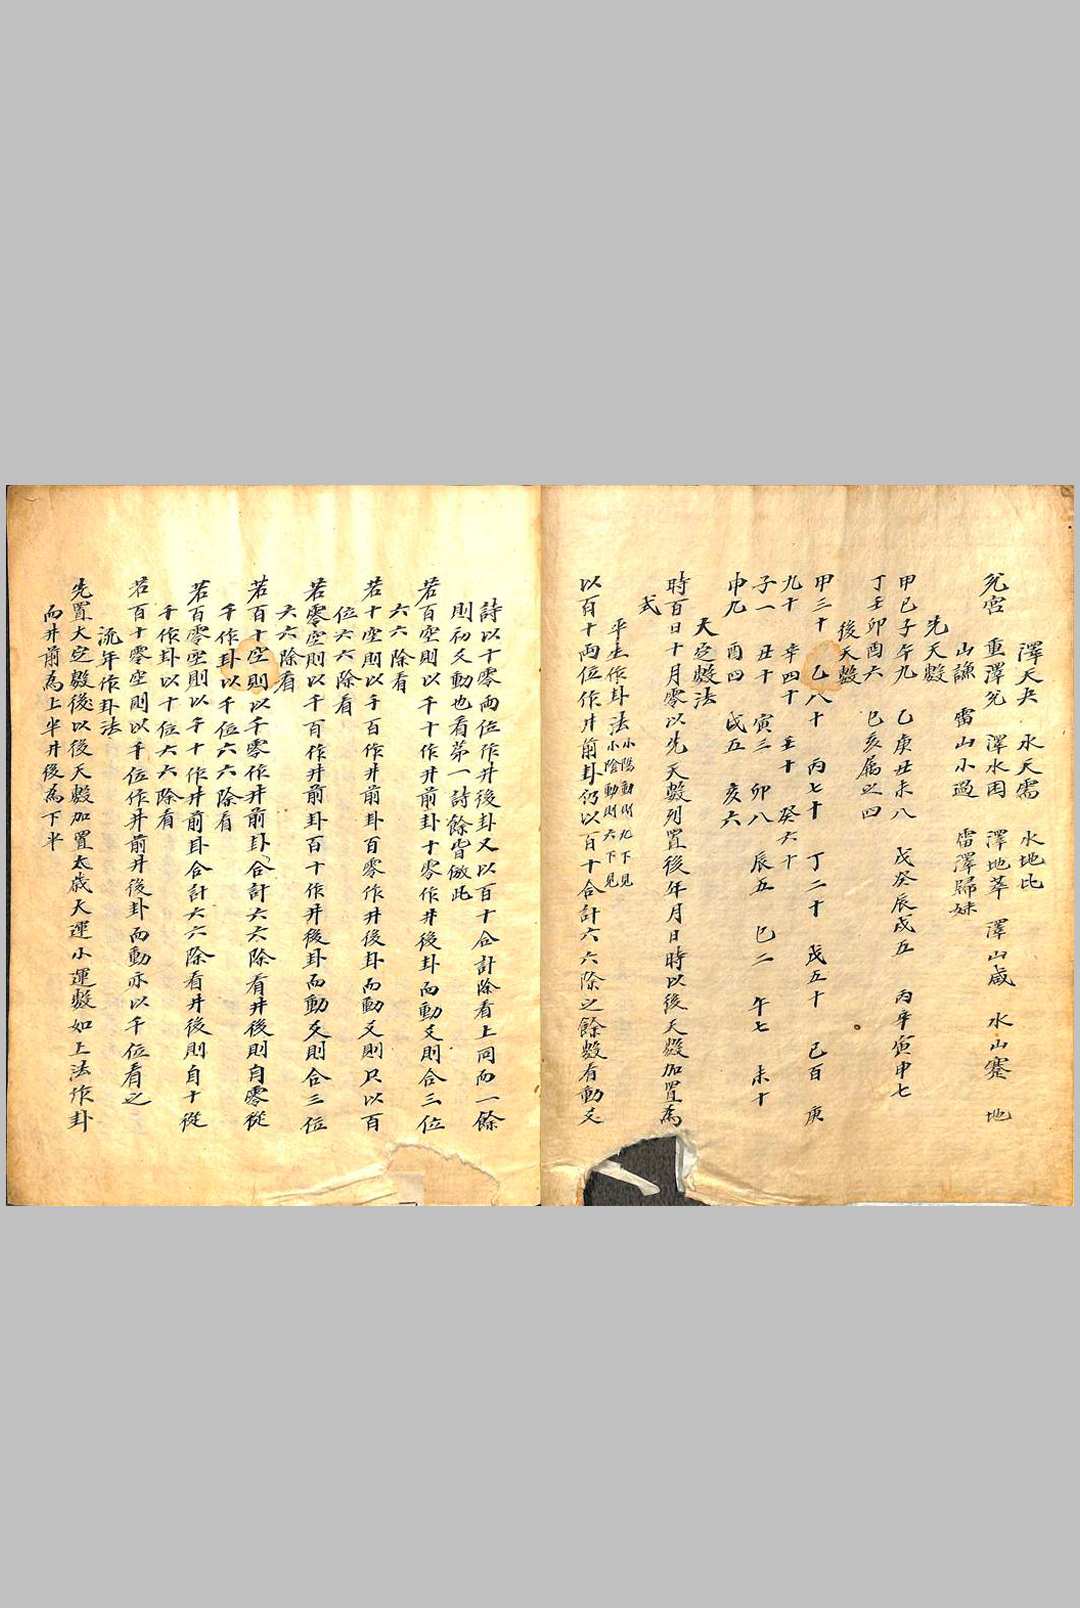 澤天夬 水天需 水地比
兌宮 重澤兌 澤水困 澤地萃 澤山咸 水山蹇 地
山謙 雷山小過 雷澤歸妹
先天數
甲己子午九 乙庚丑未八 戊癸辰戌五 丙辛寅申七
丁壬卯酉六 巳亥属之四
後天數
甲三十 乙八十 丙七十 丁二十 戊五十 己百 庚
九十 辛四十 壬十 癸六十
子一 丑十 寅三 卯八 辰五 巳二 午七 未十
申九 酉四 戌五 亥六
天定數法
時百日十月零以先天數列置後年月日時以後天數加置為
式
平生作卦法 小陽動則九下見
小陰動則六下見
以百十両位作井前卦仍以百十合計六六除之餘數看動爻
詩以十零両位作井後卦又以百十合計除看上同而一餘
則初爻動也看第一詩餘皆倣此
若百空則以千十作井前卦十零作井後卦而動爻則合三位
六六除看
若十空則以千百作井前卦百零作井後卦而動爻則只以百
位六六除看
若零空則以千百作井前卦百十作井後卦而動爻則合三位
六六除看
若百十空則以千零作井前卦合計六六除看井後則自零從
千作卦以千位六六除看
若百零空則以千十作井前卦合計六六除看井後則自十從
千作卦以十位六六除看
若百十零空則以千位作井前井後卦而動亦以千位看之
流年作卦法
先置大定數後以後天數加置太歲大運小運數如上法作卦
而井前為上半井後為下半